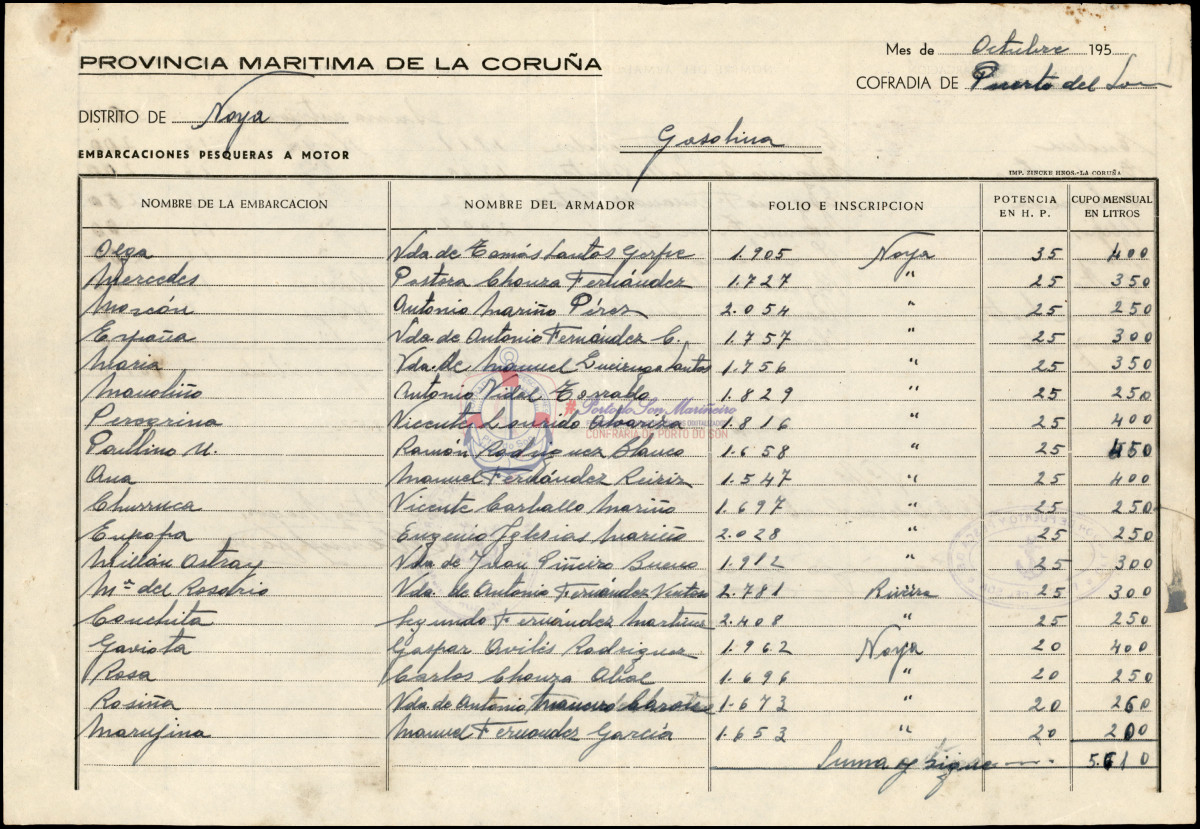 PROVINCIA MARITIMA DE LA CORUÑA
Mes de Octubre 195
COFRADIA DE Puerto del Son
DISTRITO DE Noya
Gasolina
EMBARCACIONES PESQUERAS A MOTOR
IMP. ZINCKE HNOS.-LA CORUÑA
NOMBRE DE LA EMBARCACION NOMBRE DEL ARMADOR FOLIO E INSCRIPCION POTENCIA EN H. P. CUPO MENSUAL EN LITROS
Olga Vda. de Tomás Santos Gerpe 1.905 Noya 35 400
Mercedes Pastora Chouza Fernández 1.727 " 25 350
Moscón Antonio Mariño Pérez 2.054 " 25 250
España Vda. de Antonio Fernández C. 1.757 " 25 300
Maria Vda. de Manuel Santos 1.756 " 25 350
Manoliño Antonio Vidal 1.829 " 25 250
Peregrina Vicente 1.816 " 25 400
Paulino M. Ramón Rodriguez Blanco 1.658 " 25 450
Ana Manuel Fernández 1.547 " 25 400
Churruca Vicente Carballo Mariño 1.697 " 25 250
Europa Eugenio Iglesias Mariño 2.028 " 25 250
Millán Astray Vda. de Juan Piñeiro Bueno 1.912 " 25 300
Mª del Rosario Vda. de Antonio Fernández 2.781 25 300
Conchita Segundo Fernández Martinez 2.408 " 25 250
Gaviota Gaspar Avilés Rodriguez 1.962 Noya 20 400
Rosa Carlos Chouza Abal 1.696 " 20 250
Rosiña Vda. de Antonio 1.673 " 20 260
Marujina Manuel Fernández García 1.653 " 20 200
Suma y sigue 5.610
#Porto do Son Mariñeiro
CONFRARÍA DE PORTO DO SON